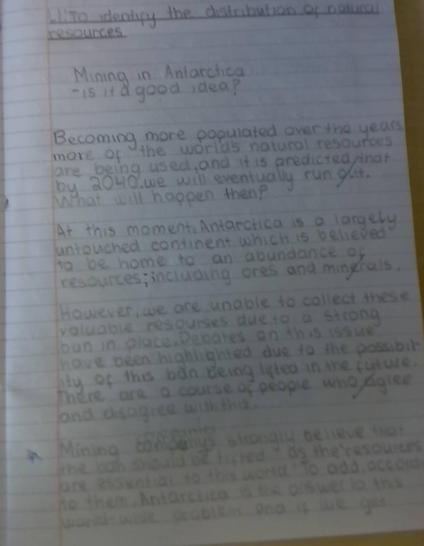 L.I: To identify the distribution of natural
resources
Mining in Antarctica
- is it a good idea?
Becoming more populated over the years
more of the worlds natural resources
are being used, and it is predicted that
by 2040, we will eventually run out.
What will happen then?
At this moment, Antarctica is a largely
untouched continent which is believed
to be home to an abundance of
resources; including ores and minerals.
However, we are unable to collect these
valuable resourses due to a strong
ban in place. Debates on this issue
have been highlighted due to the possibil-
ity of this ban being lifted in the future.
There are a course of people who agree
and disagree with this.
Mining companies strongly believe that
the ban should be lifted "as the resources
are essential to this world". To add, accord
to them, Antarctica is the answer to this
world-wide problem and if we get